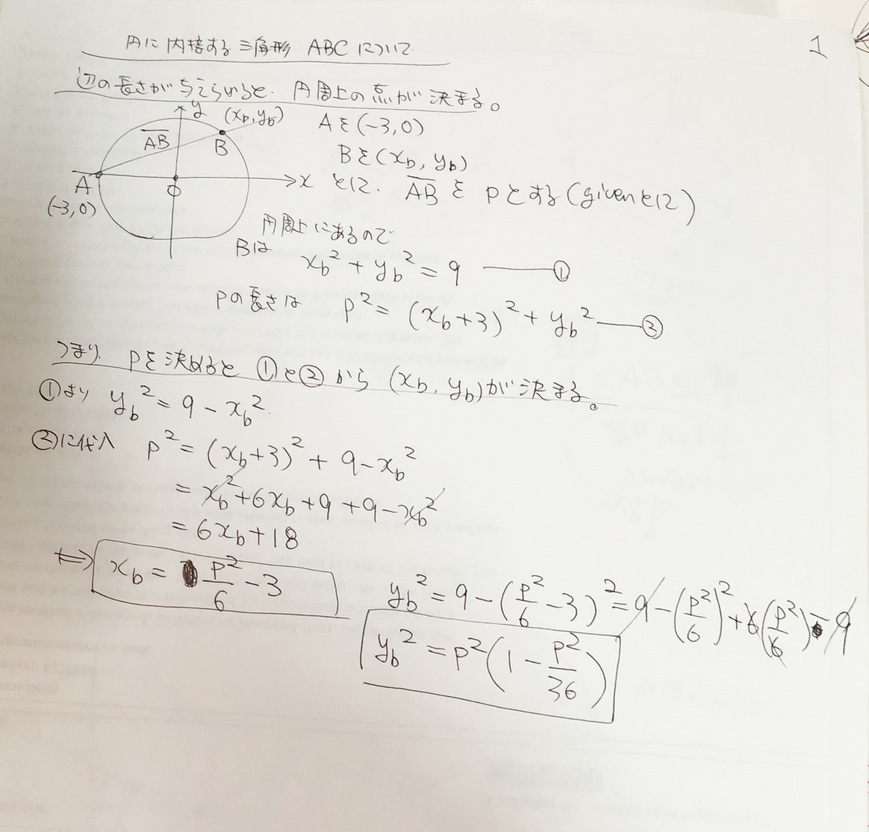 円に内接する三角形 ABCについて
1
辺の長さが与えらいると、円周上の点が決まる。
y
(xb, yb)
AB
B
A
O
x
(-3,0)
Aを(-3,0)
Bを(xb, yb)
とに、ABをpとする(givenとに)
円周上にあるので
Bは
xb² + yb² = 9 ――①
pの長さは p² = (xb+3)² + yb² ――②
つまり pを決めると ①と②から (xb, yb)が決まる。
①より yb² = 9 - xb²
②に代入 p² = (xb+3)² + 9 - xb²
= xb² + 6xb + 9 + 9 - xb²
= 6xb + 18
⇔ xb = p²/6 - 3
yb² = 9 - (p²/6 - 3)² = 9 - (p²/6)² + 6(p²/6) - 9
yb² = p²(1 - p²/36)